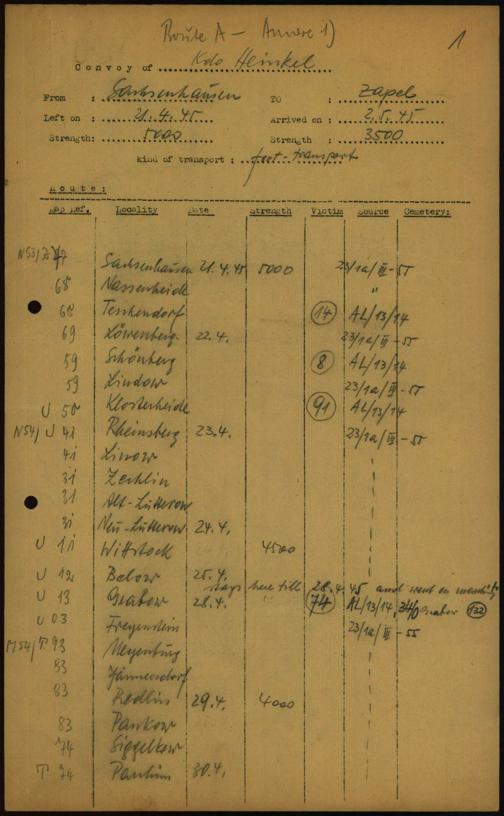 Route A - Annexe 1)
1
Convoy of Kdo Heinkel
From : Sachsenhausen TO : Zapel
Left on : 21.4.45 Arrived on : 2.5.45
Strength: 5000 Strength : 3500
kind of transport : foot-transport
Route:
Map Ref. Locality Date Strength Victim Source Cemetery:
N53/Z Sachsenhausen 21.4.45 5000 23/1a/III-55
68 Nassenheide "
68 Teschendorf 14 AL/13/14
69 Löwenberg 22.4. 23/1a/III-55
59 Schönberg 8 AL/13/14
59 Lindow 23/1a/III-55
U 50 Klosterheide 91 AL/13/14
N54/U 41 Rheinsberg 23.4. 23/1a/III-55
41 Linow
31 Zechlin
31 Alt-Lutterow
31 Neu-Lutterow 24.4.
U 11 Wittstock 4500
U 12 Below 25.4. stays here till 28.4.45 and went on
U 13 Grabow 28.4. 74 AL/13/14, Grabow 132
U 03 Freyenstein 23/1a/III-55
M54/T 93 Meyenburg
93 Jännersdorf
83 Redlin 29.4. 4000
83 Pankow
74 Siggelkow
T 74 Parchim 30.4.